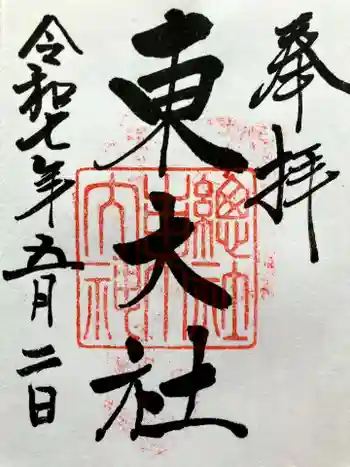 奉拝
東大社
令和七年五月二日